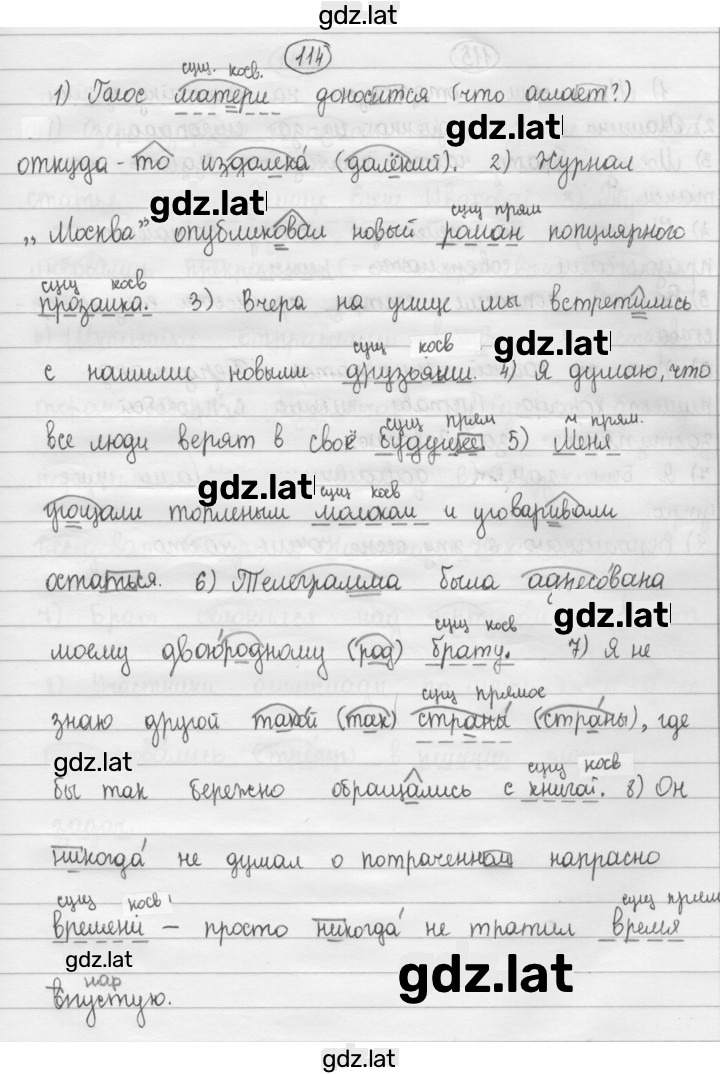 gdz.lat
114
сущ. косв.
1) Голос матери доносится (что делает?)
gdz.lat
откуда-то издалека́ (далёкий). 2) Журнал
gdz.lat
сущ прям
„Москва" опубликовал новый роман популярного
сущ косв
прозаика. 3) Вчера на улице мы встретились
сущ косв
gdz.lat
с нашими новыми друзьями. 4) Я думаю, что
сущ прям
м прям.
все люди верят в своё будущее 5) Меня
gdz.lat
сущ косв
угощали топленым молоком и уговаривали
остаться. 6) Телеграмма была адресована
gdz.lat
сущ косв
моему двою́родному (род) брату. 7) Я не
сущ прямое
знаю другой такой (так) страны́ (стра́ны), где
gdz.lat
сущ косв
бы так бережно обращались с книгой. 8) Он
никогда́ не думал о потраченном напрасно
сущ косв
сущ прям
времени – просто никогда́ не тратил время
gdz.lat
gdz.lat
нар
впустую.
gdz.lat